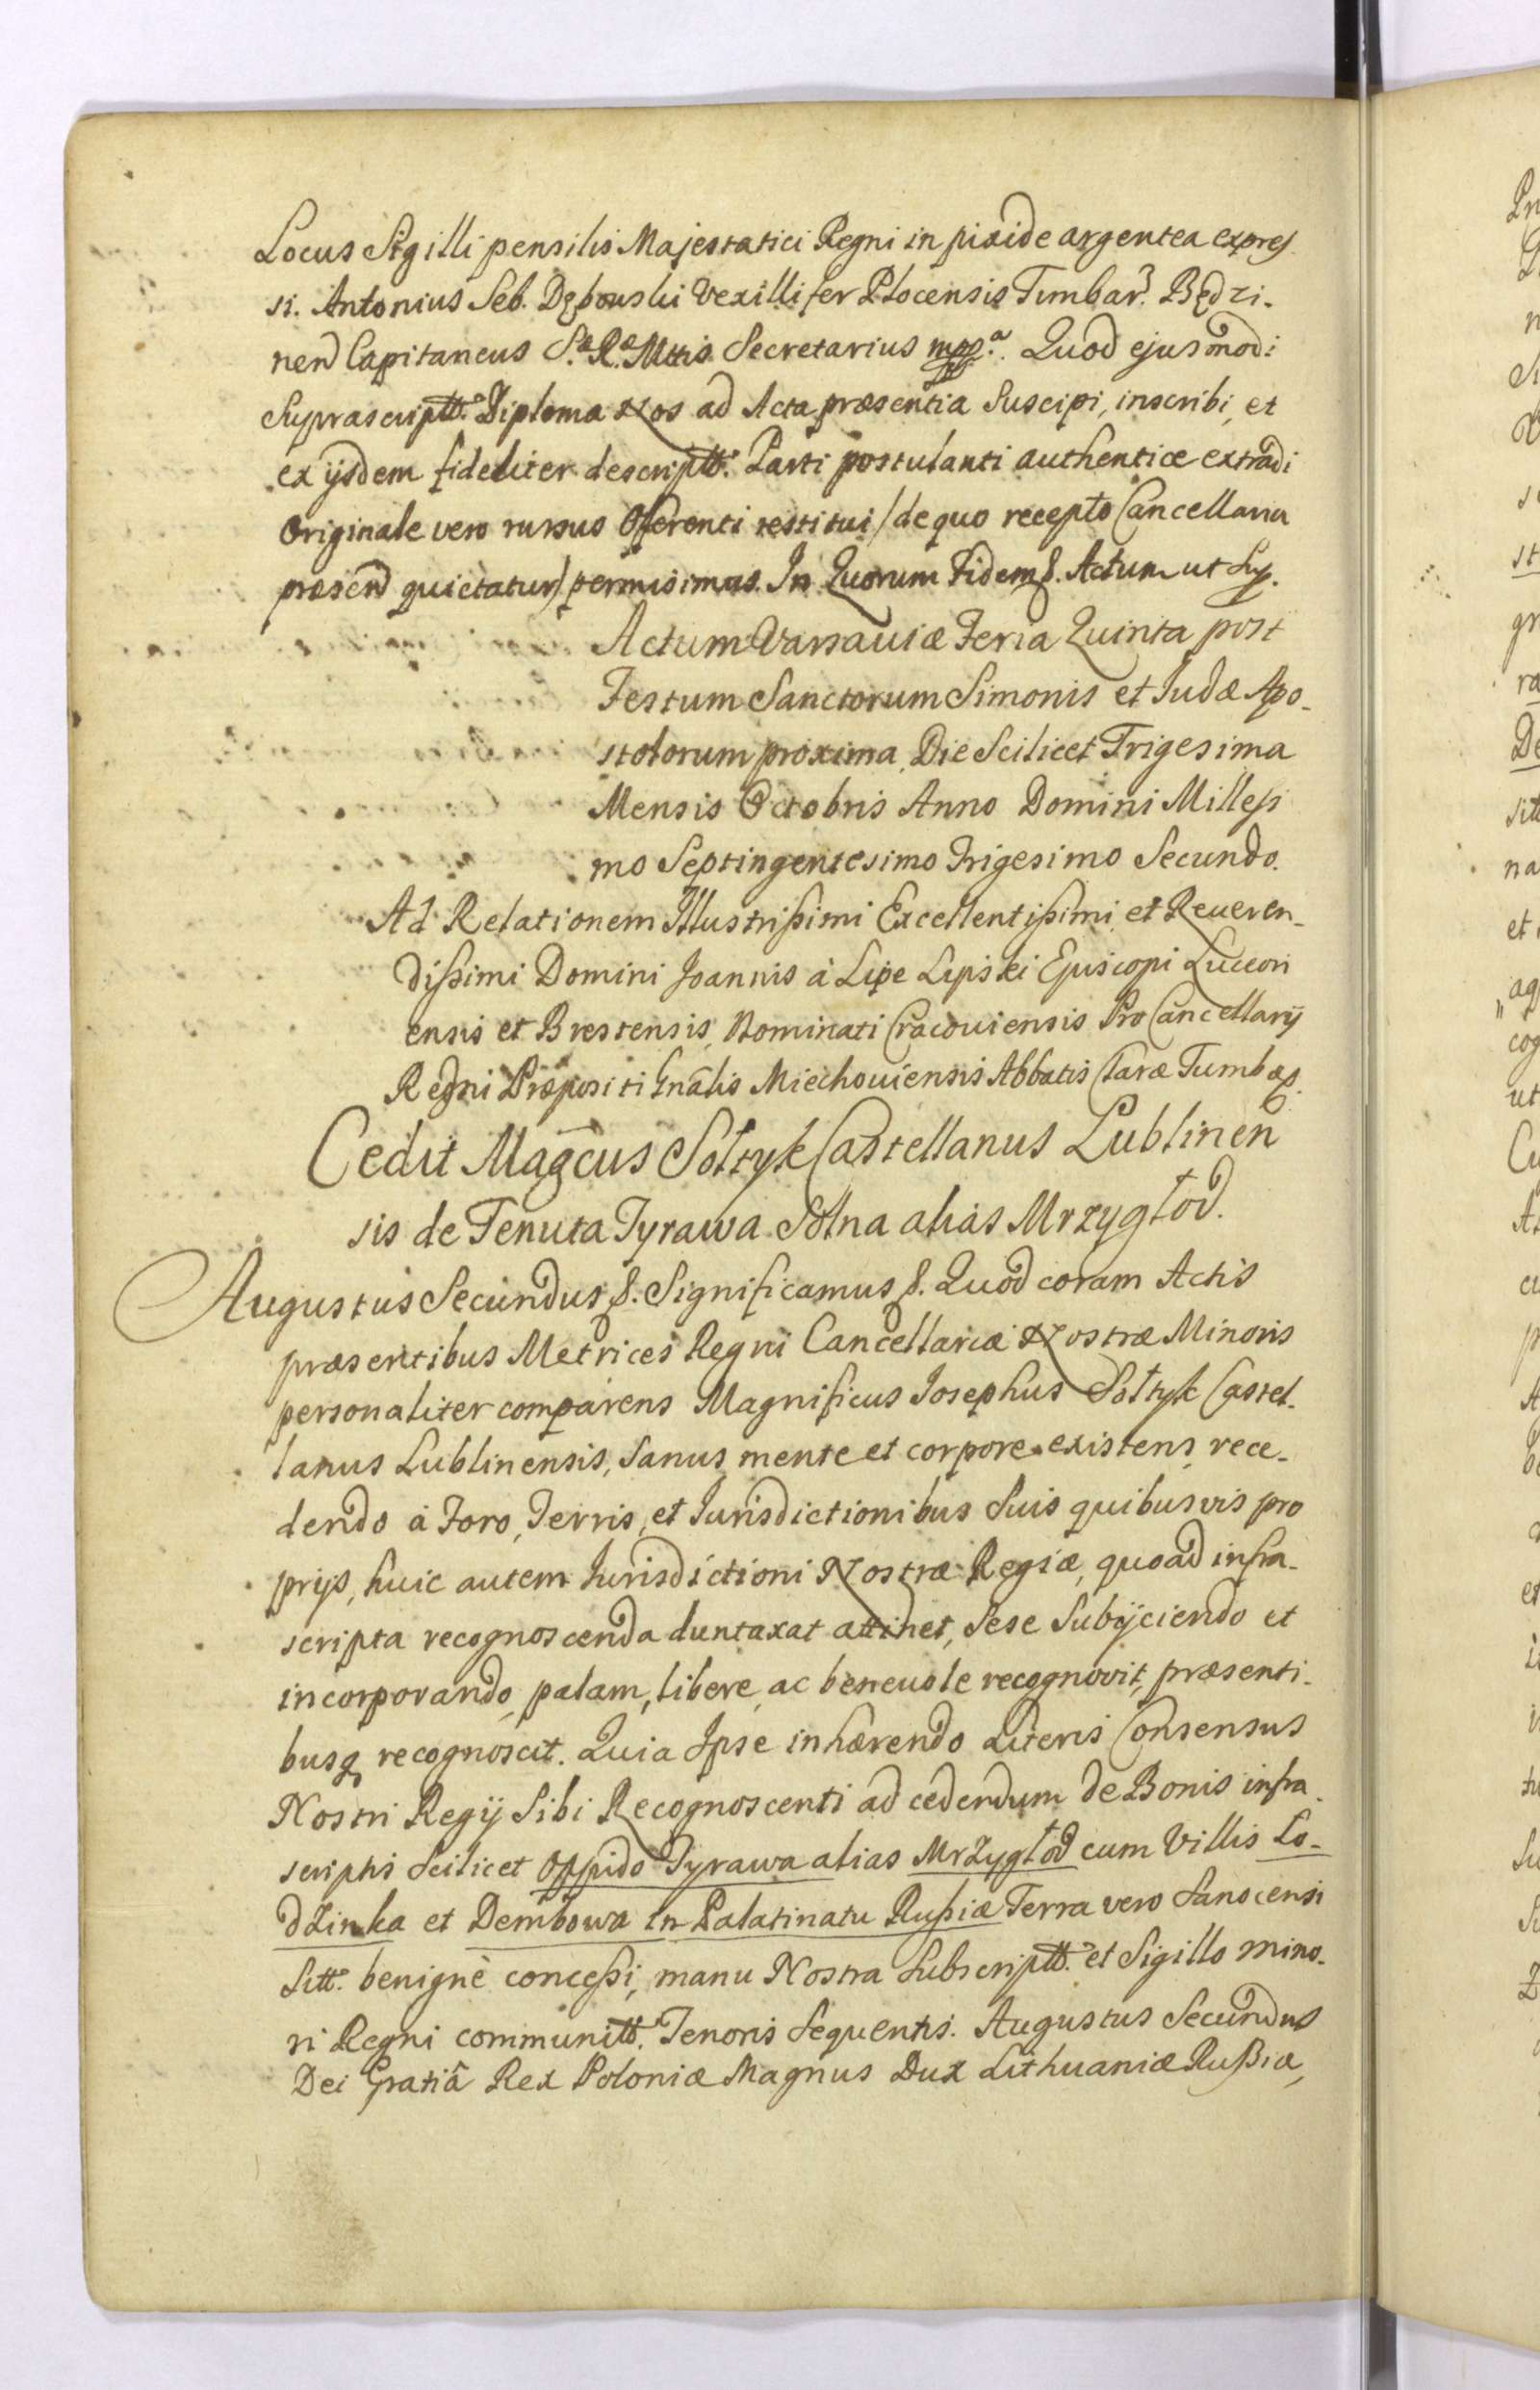 Locus Sigilli pensilis Majestatici Regni in pixide argentea expres
si. Antonius Seb. Dębowski Vexillifer Plocensis Timbar. Będzi-
nen Capitaneus S.æ R.æ Mttis Secretarius mpp.a Quod ejusmodi
Suprascriptt. Diploma Nos ad Acta præsentia Suscipi, inscribi, et
ex ijsdem fideliter descriptt. Parti postulanti authenticæ extradi
Originale vero rursus Offerenti restitui /de quo recepto Cancellaria
præsen quietatur/ permisimus. In Quorum Fidem &. Actum ut Sup.
Actum Varsaviæ Feria Quinta post
Festum Sanctorum Simonis et Judæ Apo-
stolorum proxima, Die Scilicet Trigesima
Mensis Octobris Anno Domini Millesi
mo Septingentesimo Trigesimo Secundo.
Ad Relationem Illustrissimi Excellentissimi et Reueren-
dissimi Domini Joannis à Lipe Lipski Episcopi Luceori
ensis et Brestensis, Nominati Cracouiensis Pro Cancellarij
Regni Præpositi Gnālis Miechouiensis Abbatis Claræ Tumbæ &.
Cedit Magcus Sołtyk Castellanus Lublinen
sis de Tenuta Tyrawa Solna alias Mrzygłod.
Augustus Secundus &. Significamus &. Quod coram Actis
præsentibus Metrices Regni Cancellariæ Nostræ Minoris
personaliter comparens Magnificus Josephus Sołtyk Castel-
lanus Lublinensis, Sanus mente et corpore existens, rece-
dendo à Foro, Terris, et Jurisdictionibus Suis quibusvis pro
prijs, huic autem Jurisdictioni Nostræ Regiæ, quoad infra-
scripta recognoscenda duntaxat attinet, Sese Subijciendo et
incorporando, palam, libere, ac beneuole recognovit, præsenti-
busq recognoscit. Quia Ipse inhærendo Literis Consensus
Nostri Regij Sibi Recognoscenti ad cedendum de Bonis infra
scriptis Scilicet Oppido Tyrawa alias Mrzygłod cum Villis Lo-
dzinka et Dembowa in Palatinatu Russiæ Terra vero Sanocensi
Sitt. benignè concessi, manu Nostra Subscriptt. et Sigillo mino-
ri Regni communitt. Tenoris Sequentis. Augustus Secundus
Dei Gratiâ Rex Poloniæ Magnus Dux Lithuaniæ Russiæ,